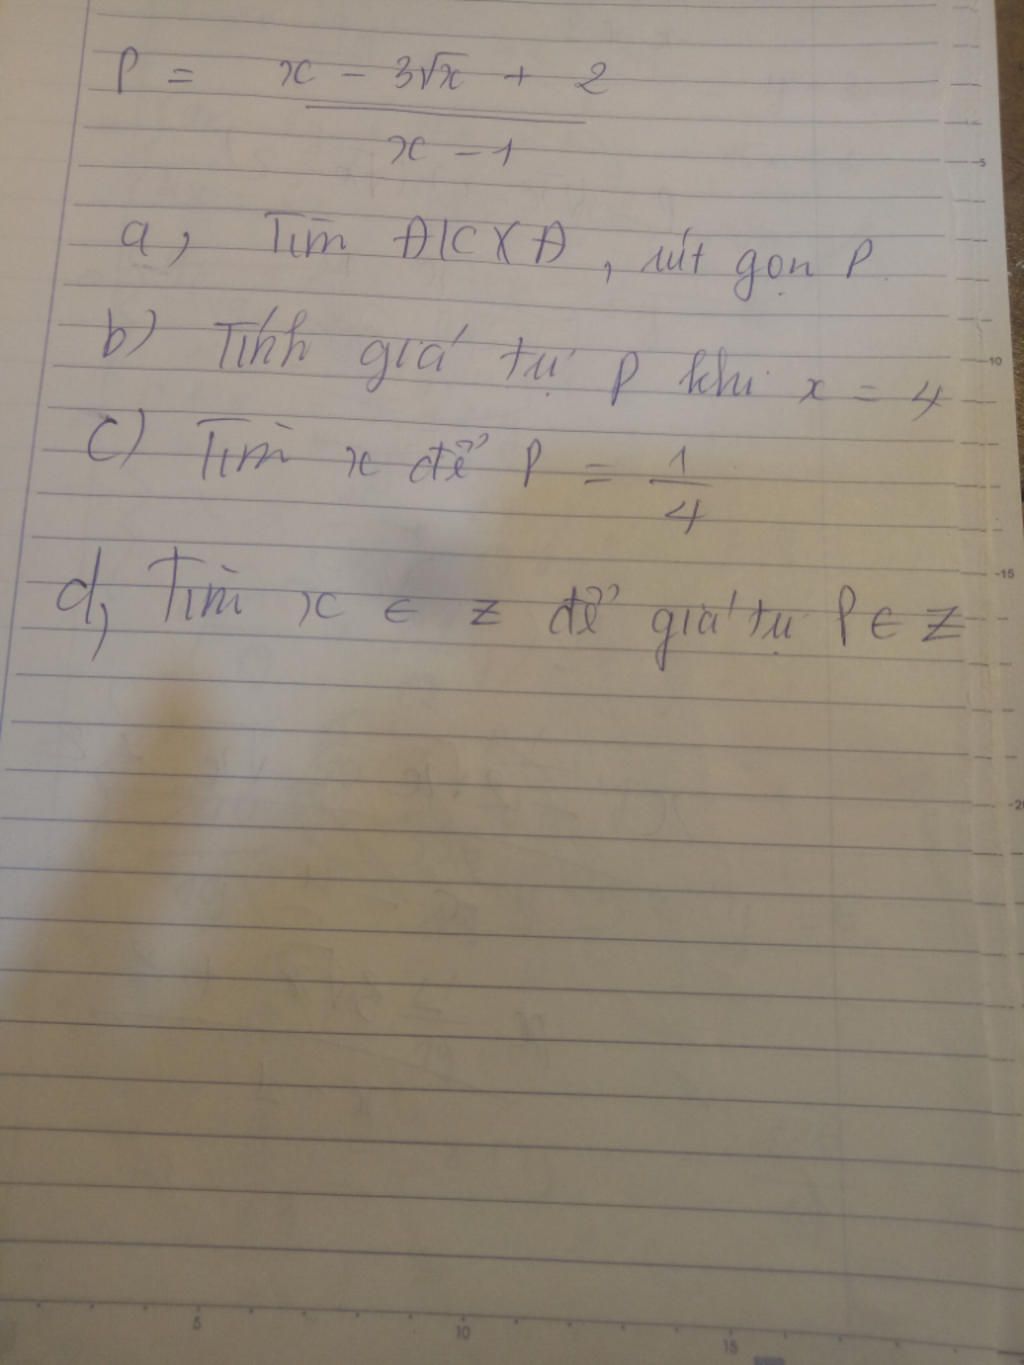 P = x - 3√x + 2
x - 1
a, Tìm ĐKXĐ, rút gọn P.
b) Tính giá trị P khi x = 4
c) Tìm x để P = 1/4
d, Tìm x ∈ Z để giá trị P ∈ Z
5
10
15
20
5
10
15